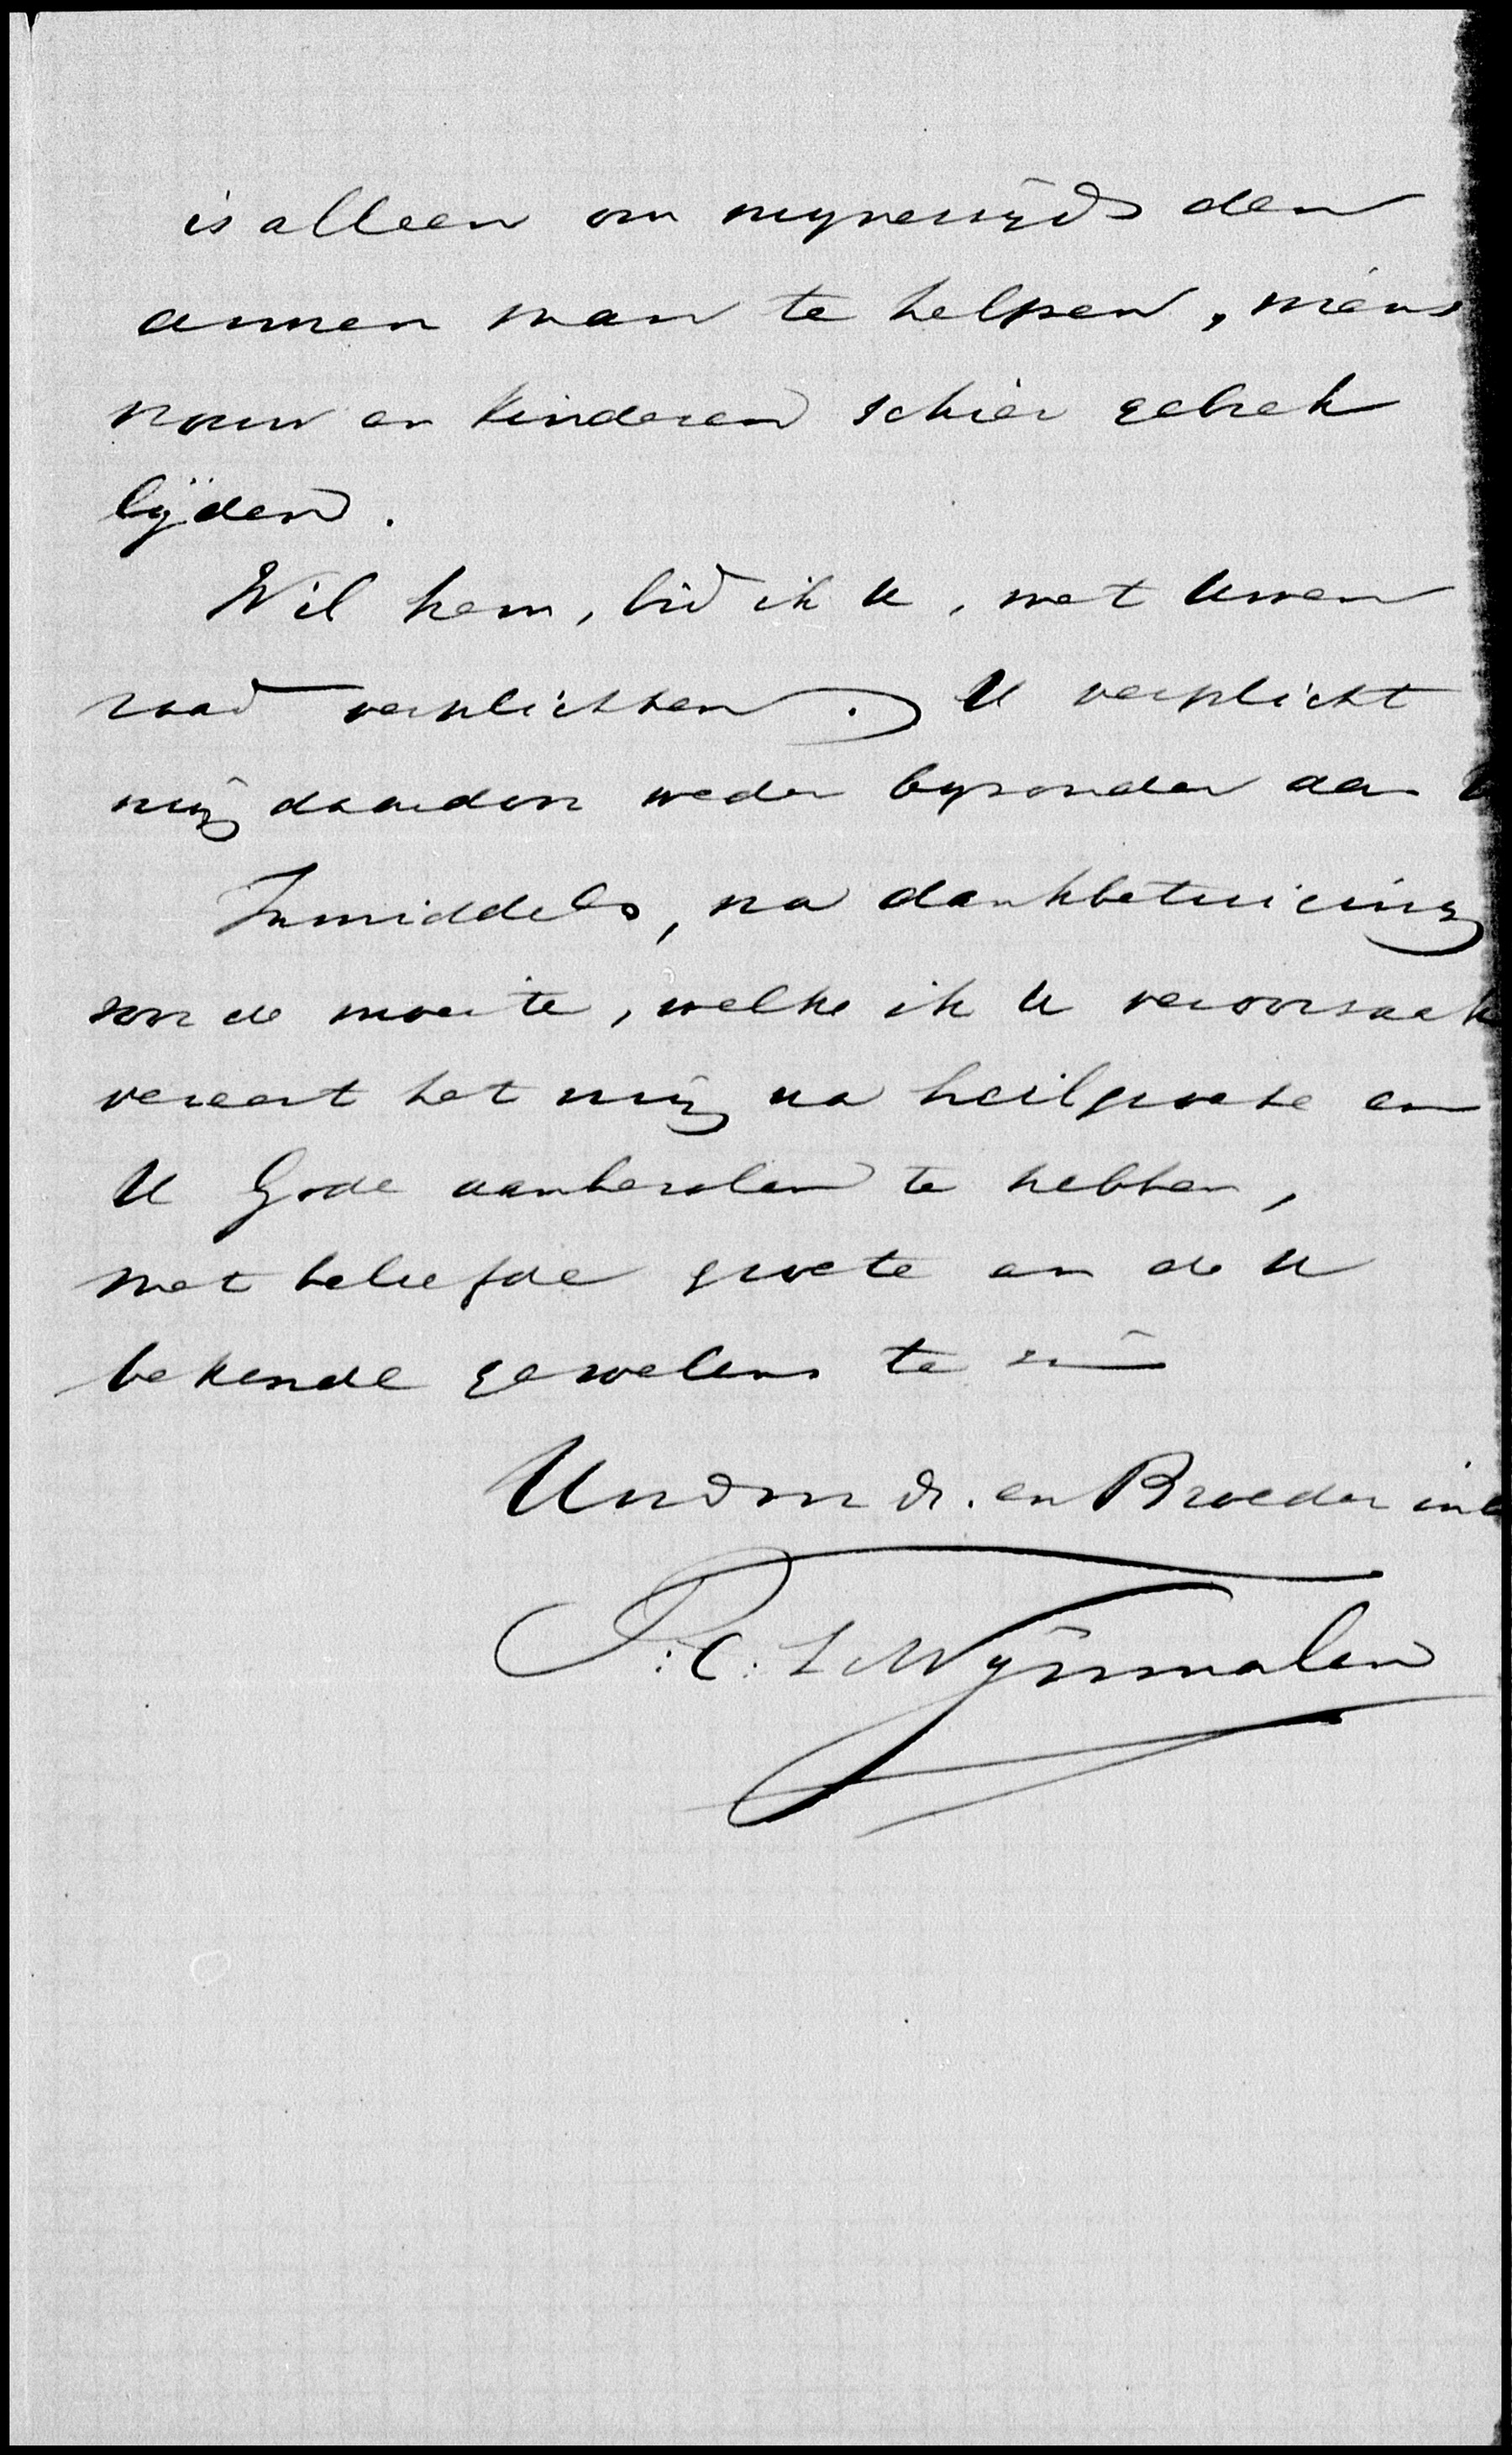 is alleen om mynerzyds den
armen man te helpen, wiens
vrouw en kinderen schier gebrek
lijden.
Wil hem, bid ik U, met Uwen
raad verplichten. U verplicht
mij daardoor weder byzonder aan U
Inmiddels, na dankbetuiging
voor de moeite, welke ik U veroorzaak
vereert het mij na heilgroete en
U Gode aanbevolen te hebben,
met beleefde groete en de U
bekende gevoelens te zijn
en Broeder in
P: C: L Wijnmalen